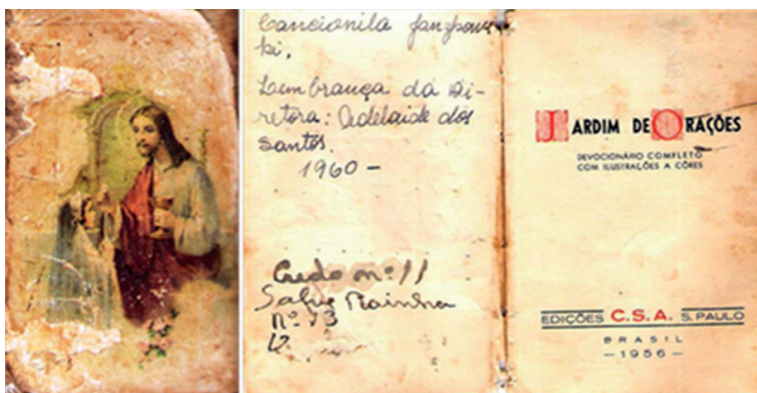 Cancionila
Lembrança da Di-
retora: Adelaide dos
Santos.
1960 -
Credo nº 11
Salve Rainha
Nº 13
JARDIM DE ORAÇÕES
DEVOCIONÁRIO COMPLETO
COM ILUSTRAÇÕES A CÔRES
EDIÇÕES C.S.A. S. PAULO
BRASIL
— 1956 —